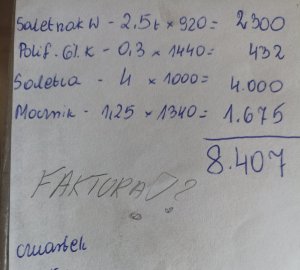 Saletrak W - 2,5t × 920 = 2300
Polif. 6% K - 0,3 × 1440 = 432
Saletra - 4 × 1000 = 4.000
Mocznik - 1,25 × 1340 = 1.675
8.407
FAKTURA ?
czwartek